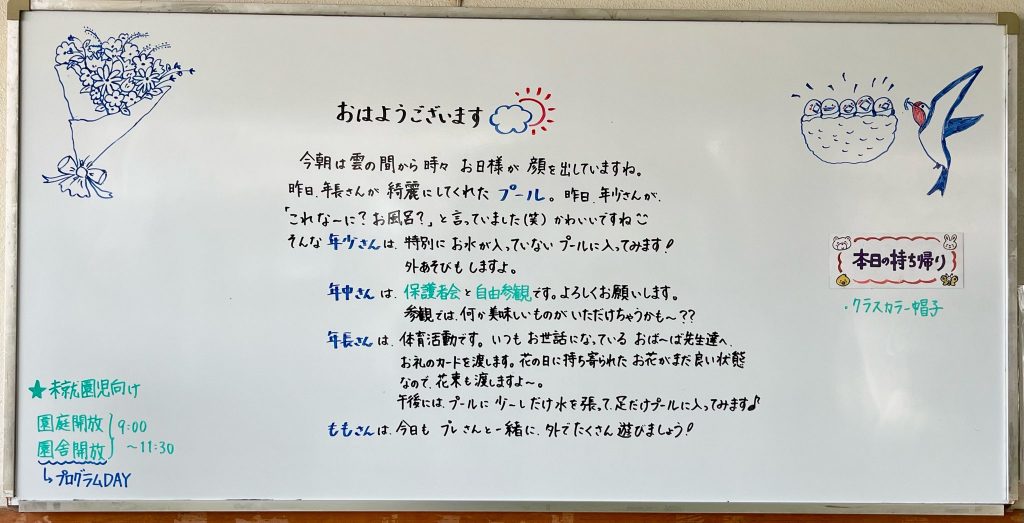 おはようございます
今朝は雲の間から時々 お日様が 顔を出していますね。
昨日、年長さんが 綺麗にしてくれた プール。昨日、年少さんが、
「これな～に？お風呂？」と言っていました(笑) かわいいですね
そんな 年少さんは、特別に お水が入っていない プールに入ってみます！
外あそびも しますよ。
年中さん は、保護者会と自由参観です。よろしくお願いします。
参観では、何か美味しいものが いただけちゃうかも～？？
年長さん は、体育活動です。いつも お世話になっている おば～ば先生達へ、
お礼のカードを渡します。花の日に持ち寄られた お花がまだ良い状態
なので、花束も渡しますよ～。
午後には、プールに 少～しだけ水を張って、足だけプールに入ってみます♪
ももさん は、今日も プレさんと一緒に、外でたくさん 遊びましょう！
本日の持ち帰り
・クラスカラー帽子
★未就園児向け
園庭開放
園舎開放
9:00
～11:30
↳プログラムDAY